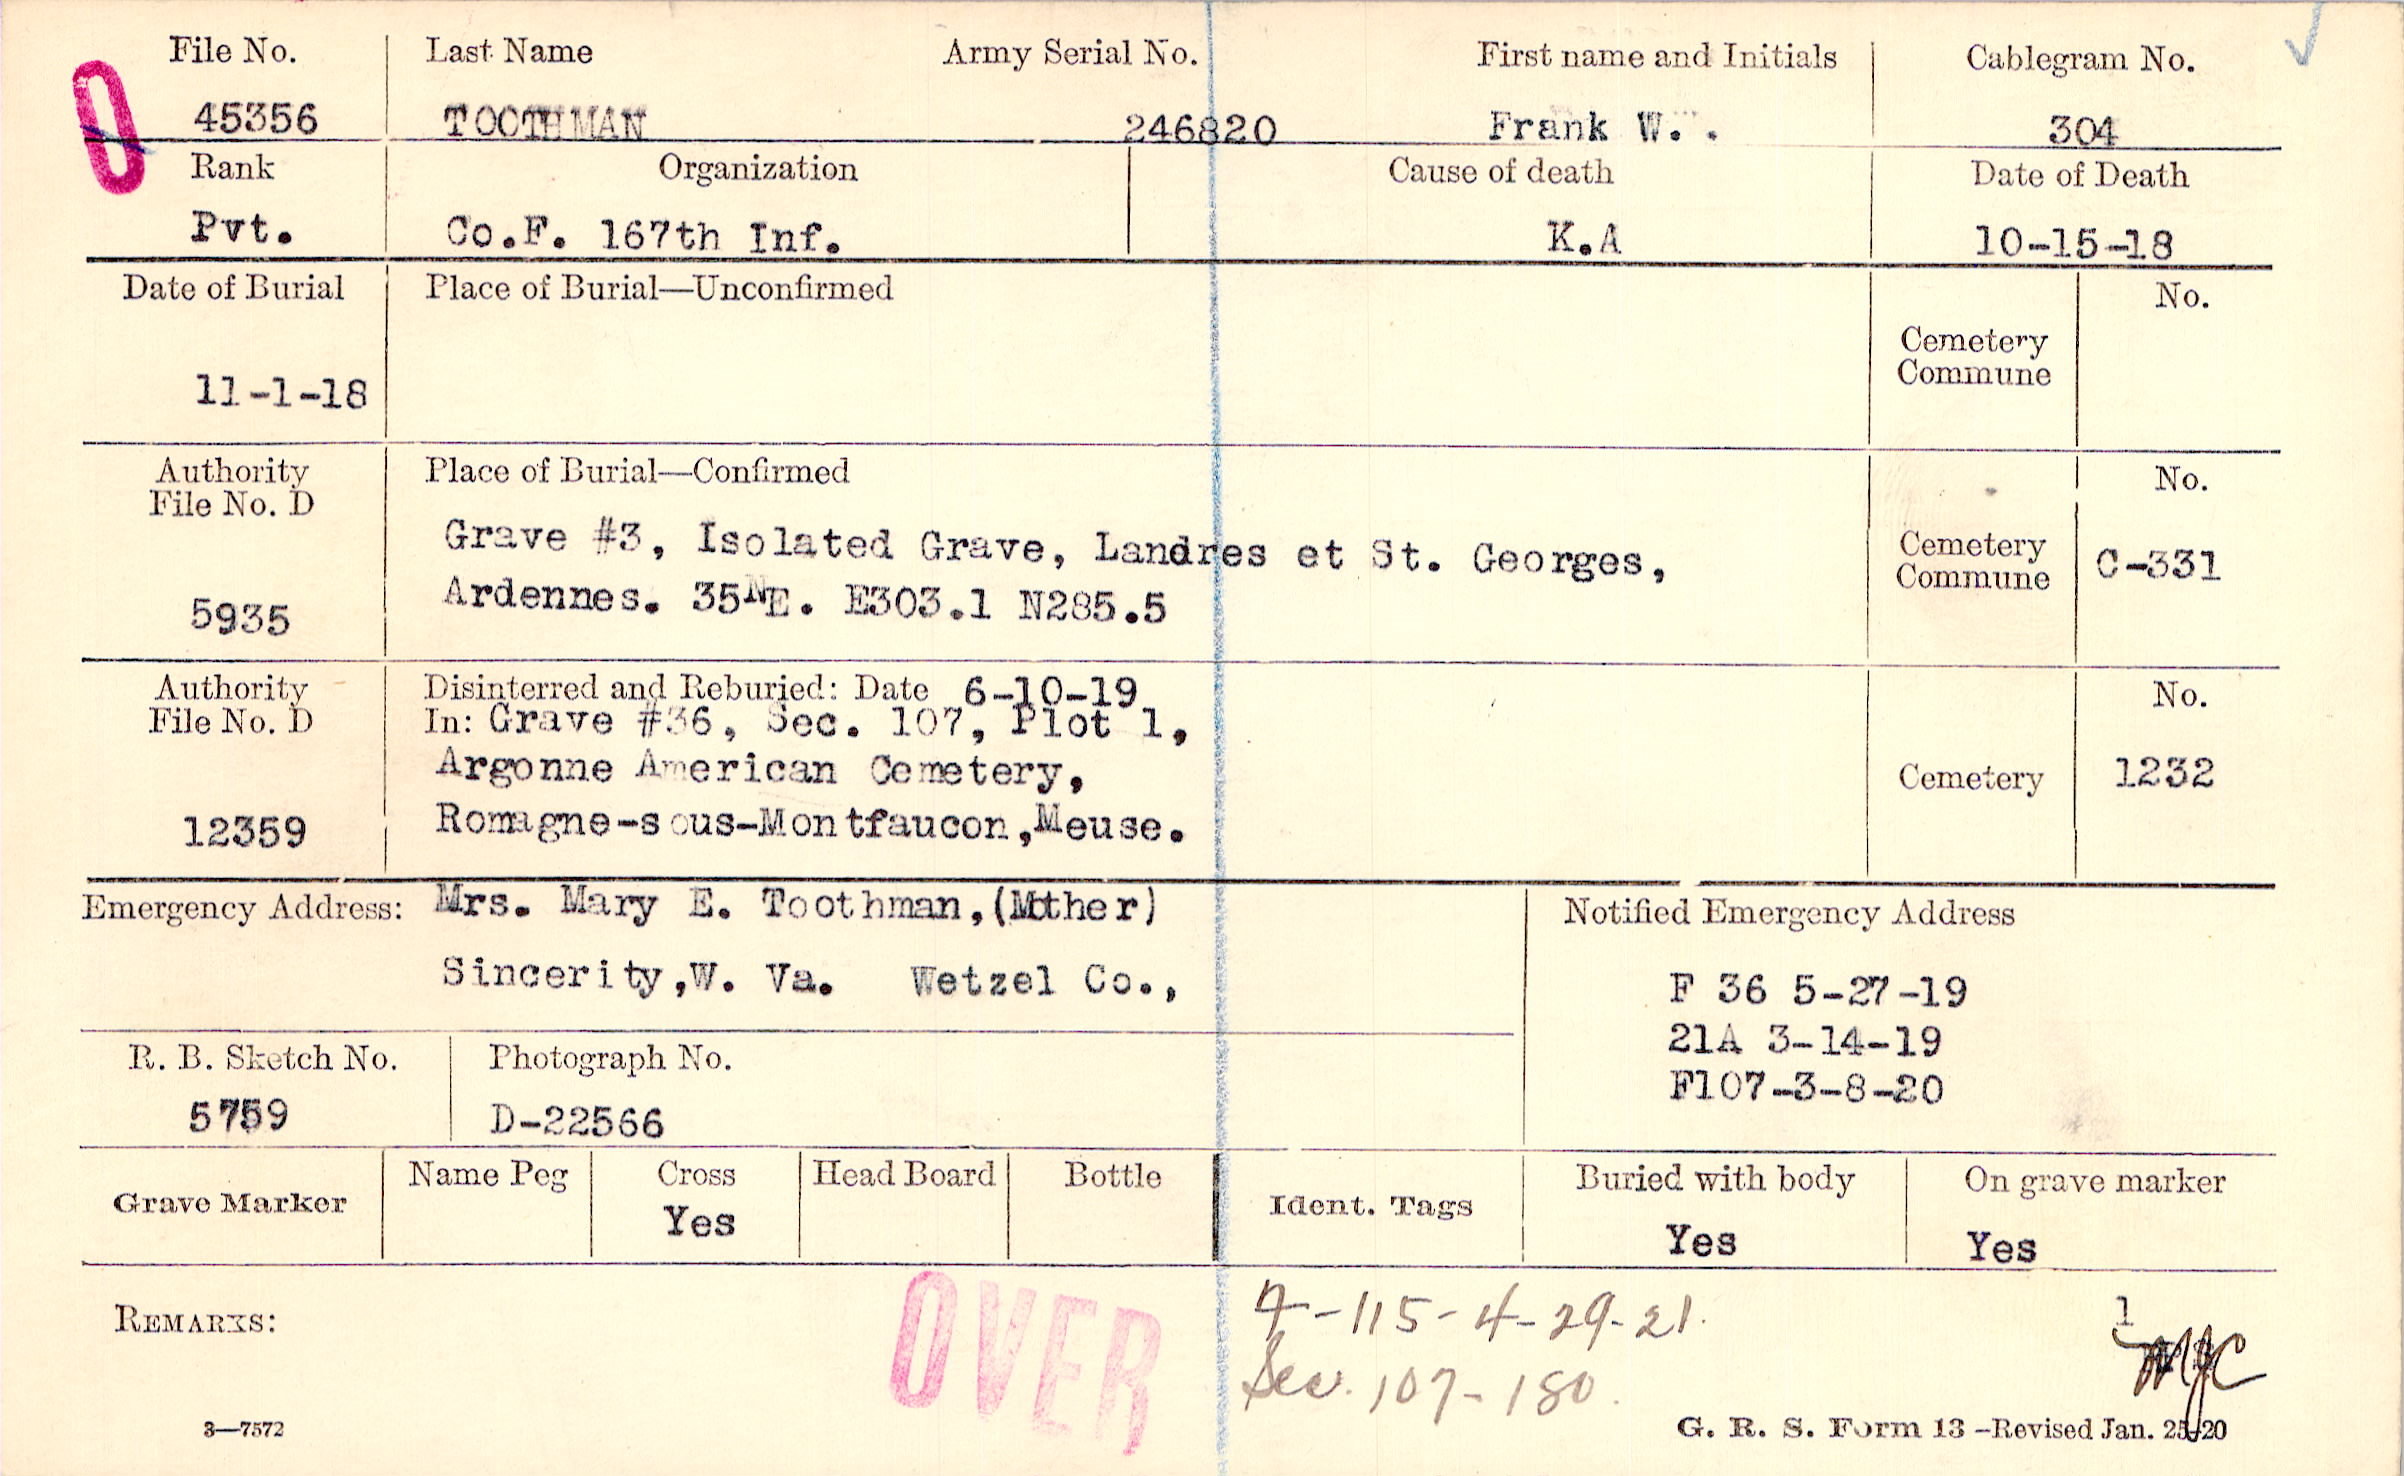 File No. Last Name Army Serial No. First name and Initials Cablegram No.
45356 TOOTHMAN 246820 Frank W. . 304
O
Rank Organization Cause of death Date of Death
Pvt. Co.F. 167th Inf. K.A 10-15-18
Date of Burial Place of Burial—Unconfirmed No.
Cemetery
Commune
11-1-18
Authority Place of Burial—Confirmed No.
File No. D
Grave #3, Isolated Grave, Landres et St. Georges, Cemetery
Commune C-331
Ardennes. 35NE. E303.1 N285.5
5935
Authority Disinterred and Reburied: Date 6-10-19 No.
File No. D In: Grave #36, Sec. 107, Plot 1,
Argonne American Cemetery, Cemetery 1232
12359 Romagne-sous-Montfaucon,Meuse.
Emergency Address: Mrs. Mary E. Toothman,(Mother) Notified Emergency Address
Sincerity,W. Va. Wetzel Co., F 36 5-27-19
21A 3-14-19
R. B. Sketch No. Photograph No.
F107-3-8-20
5759 D-22566
Grave Marker Name Peg Cross Head Board Bottle Ident. Tags Buried with body On grave marker
Yes Yes Yes
REMARKS: OVER -115-4-29-21. 1
Sec. 107-180. MJC
3—7572 G. R. S. Form 13 -Revised Jan. 25-20